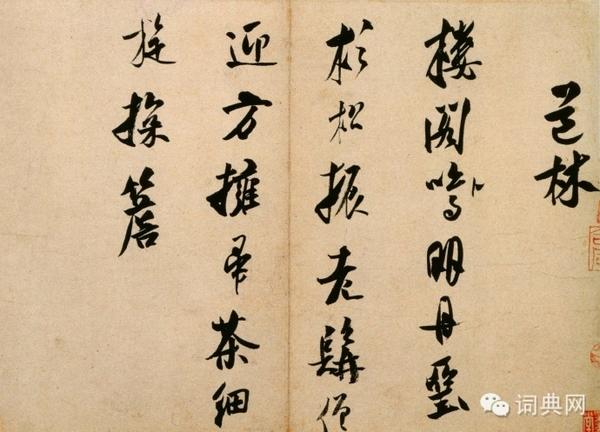 道林
樓閣鳴明丹堊
杉松振老髯僧
迎方擁帚茶細
旋探簷
词典网